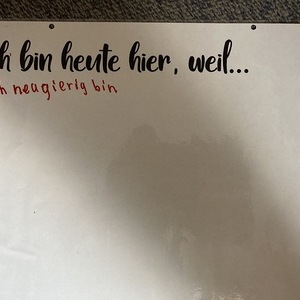 h bin heute hier, weil...
h neugierig bin